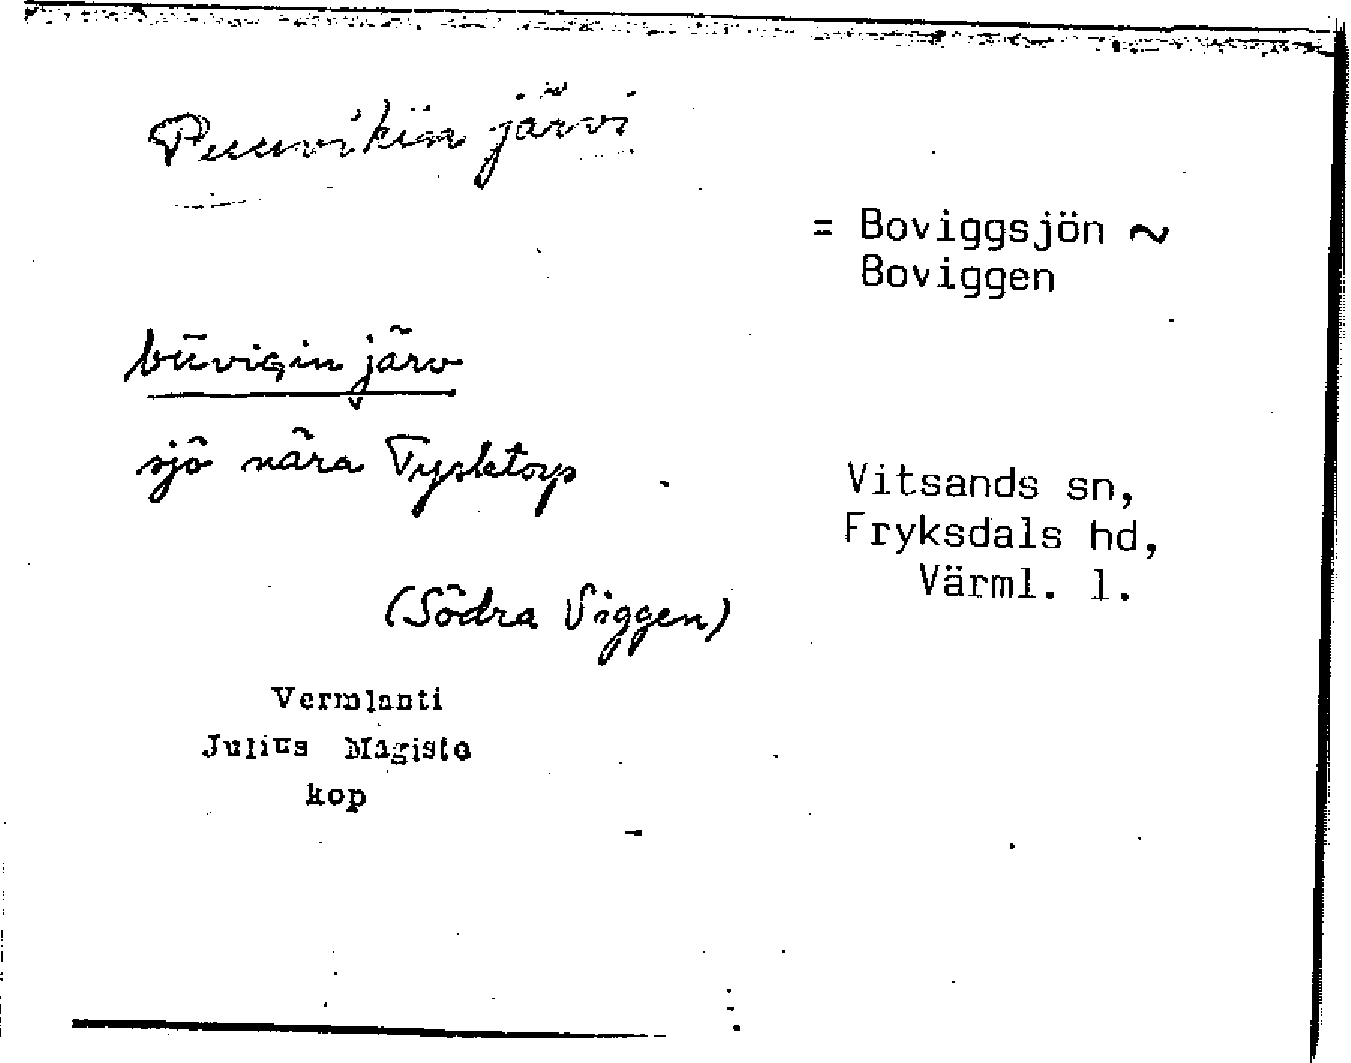 Puuvikin järvi
= Boviggsjön ~
Boviggen
būvigin järv
sjö nära Tysktorp
Vitsands sn,
Fryksdals hd,
Värml. l.
(Södra Viggen)
Vermlanti
Julius Mägiste
kop